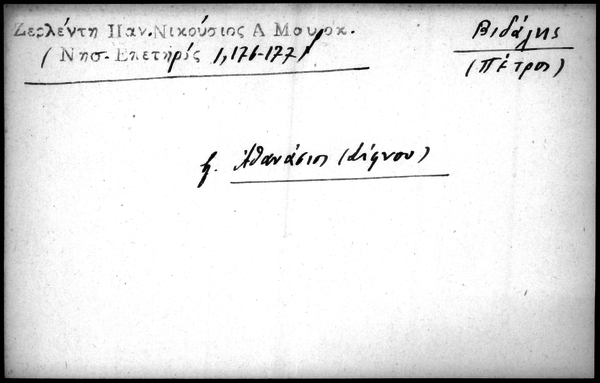 Ζερλέντη Παν. Νικούσιος Α Μαυροκ.
( Νησ. Επετηρίς 1, 176-177)
Βιδάλης
(Πέτρος)
βλ. Ἀθανάσιος (Σίφνου)